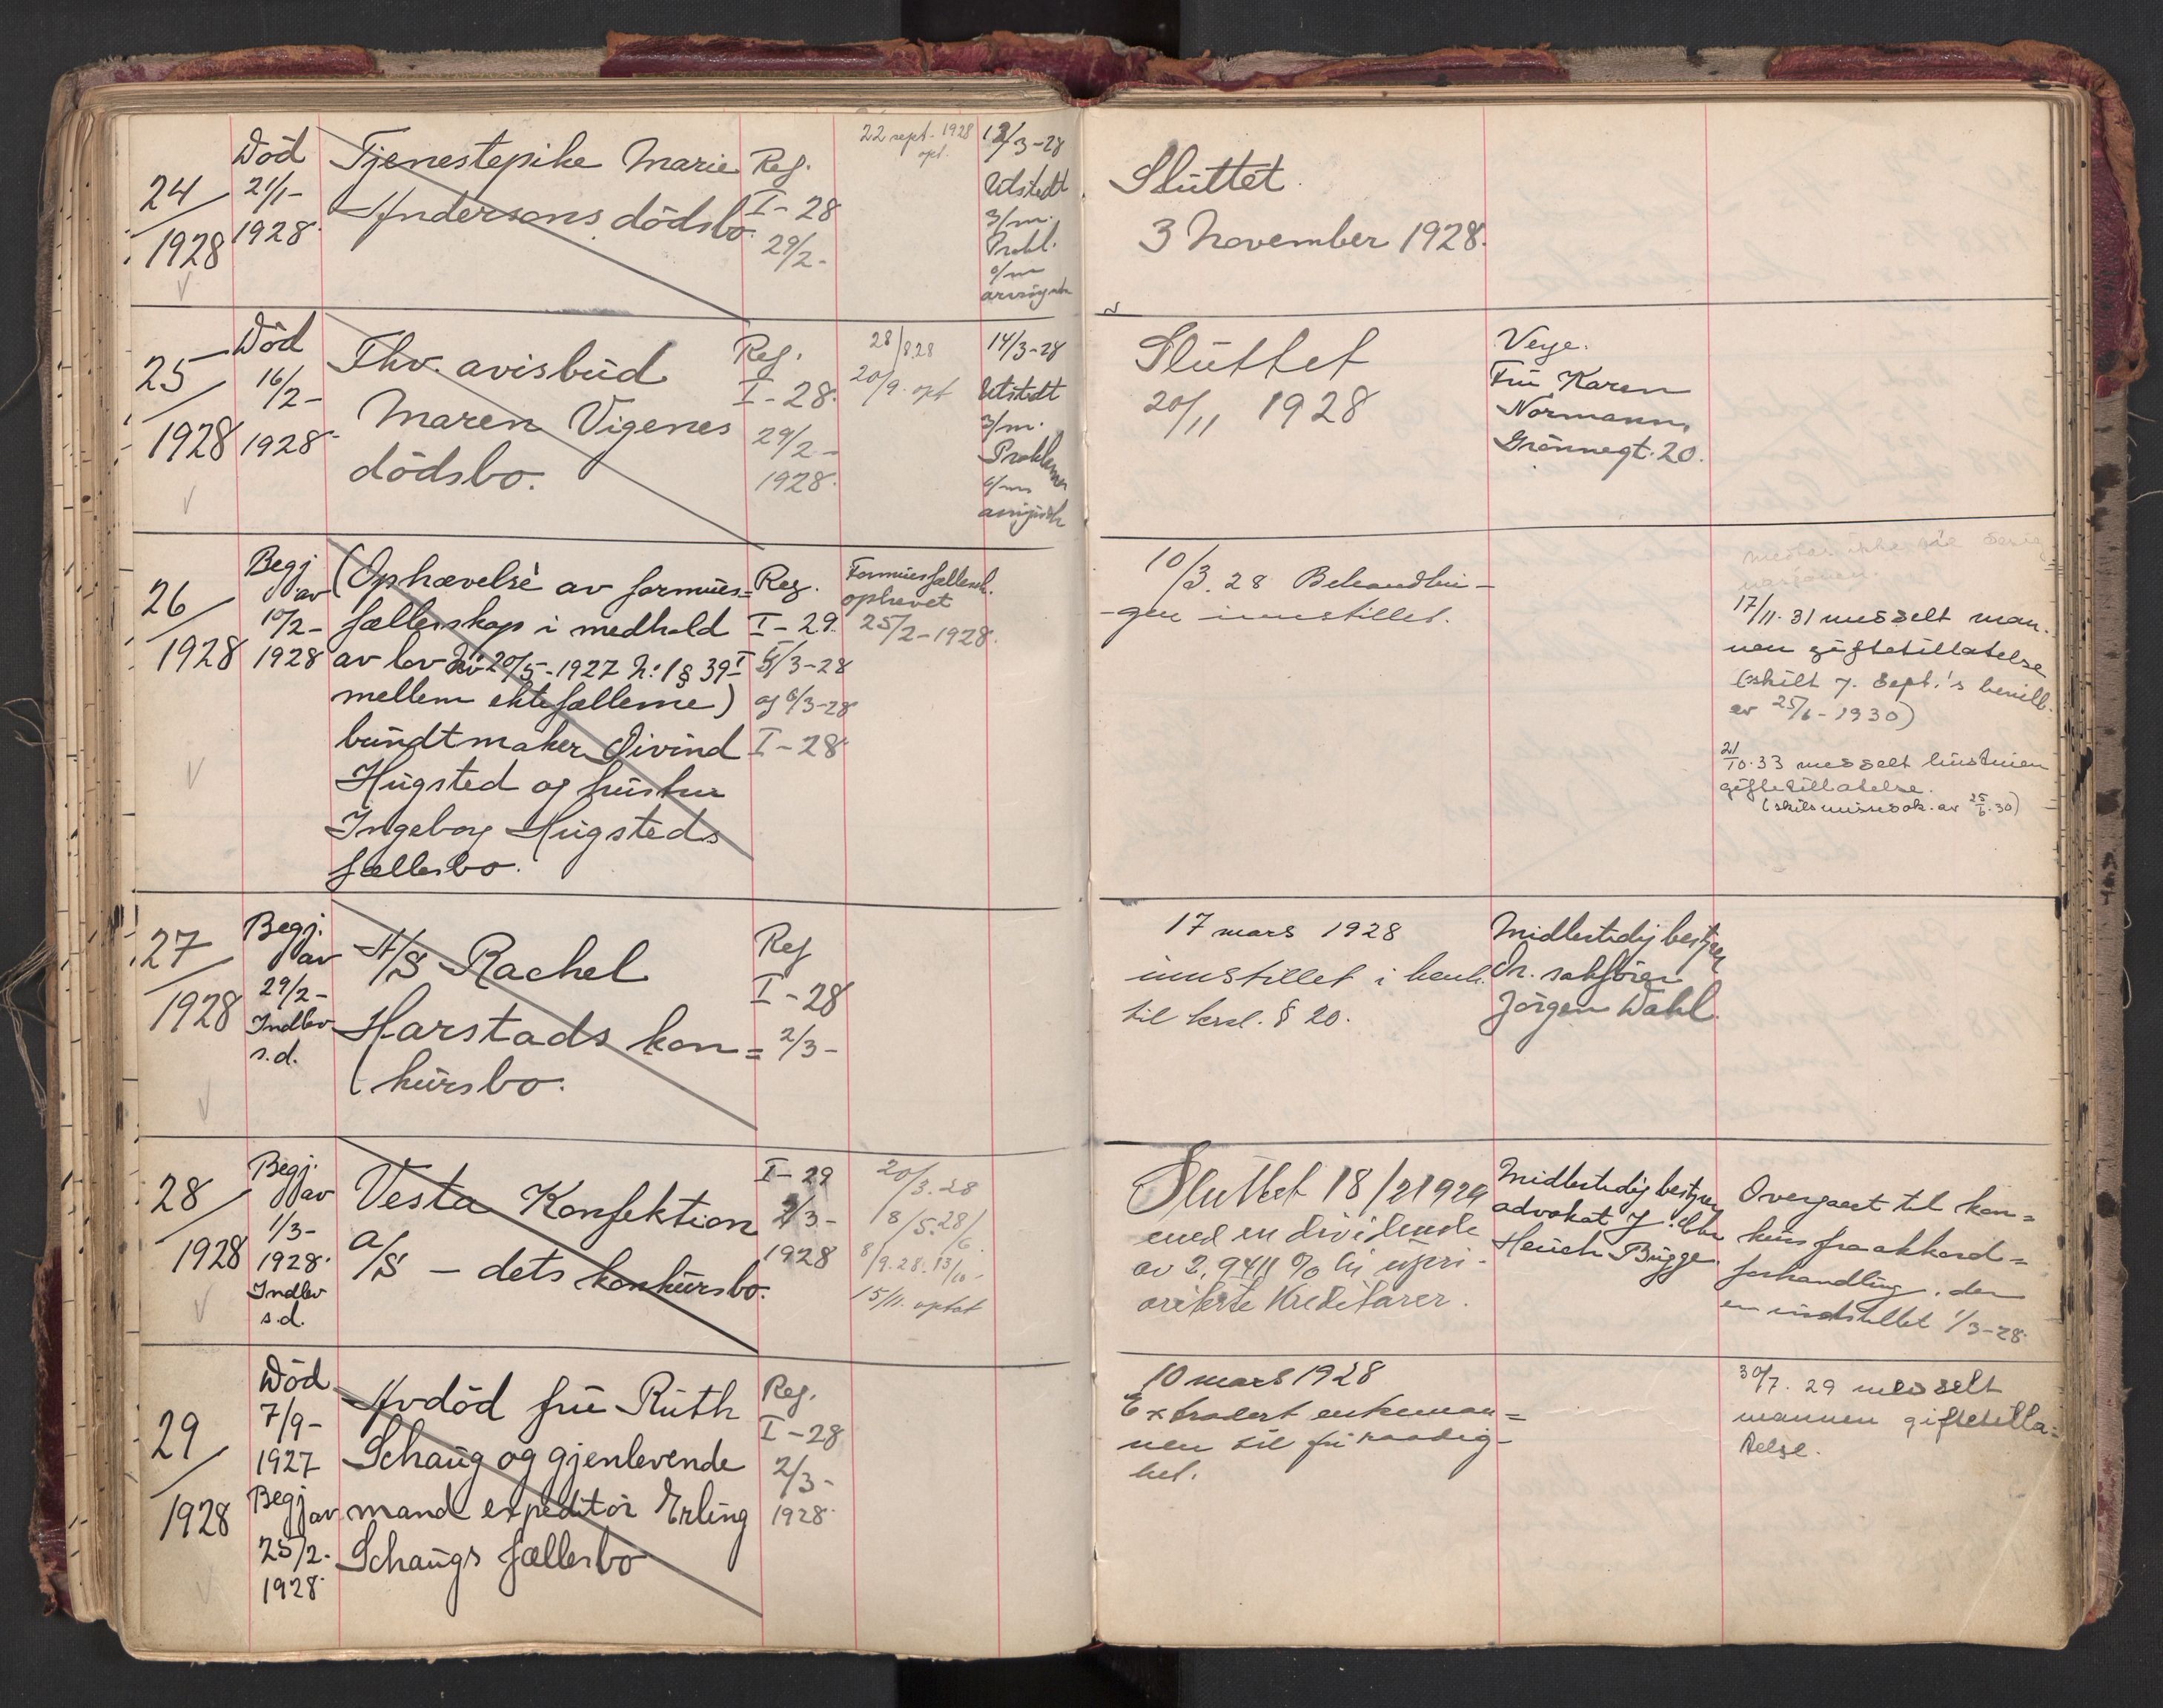 24/1928
Död
21/1-
1928
Tjenestepike Marie
Andersens dödsbo.
Reg.
I-28
29/2-
22 sept. 1928
opt.
12/3-28
Utstedt
3/m.
Prokl.
o/m
Sluttet
3 November 1928.
25/1928
Död
16/2-
1928
Fhv. avisbud
Maren Vigenes
dödsbo.
Reg.
I-28.
29/2-
1928.
28/8.28
20/9. opt
14/3-28
Utstedt
3/m.
Proklama
Sluttet
20/11 1928
Verge.
Fru Karen
Normann,
Grönnegt. 20.
26/1928
Begj
av
10/2-
1928
(Ophævelse av formues=
fællesskap i medhold
av lov av 20/5-1927 N: 1 § 39 I
mellem ektefællerne)
bundtmaker Øivind
Hugsted og hustru
Ingeborg Hugsteds
fællesbo.
Reg.
I-29.
5/3-28
og 6/3-28
I-28
Formuesfællessk.
ophevet
25/2-1928.
10/3.28 Behandlin-
-gen innstillet.
17/11.31 messelt man-
nen giftetillatelse
(skilt v. Sept.'s bevill.
av 25/6-1930)
21/10.33 messelt hustruen
giftetillatelse.
(skilsmissesak. av 25/6.30)
27/1928
Begj.
av
29/2-
Indlev
s.d.
A/S Rachel
Harstads kon=
kursbo.
Reg
I-28
2/3-
17 mars 1928
innstillet i henh.
til krsl. § 20.
Midlertidig bestyrer
Or. sakförer
Jörgen Dahl.
28/1928
Begj.
av
1/3-
1928.
Indlev
s.d.
Vesta Konfektion
A/S - dets konkursbo.
I-29
2/3-
1928
20/3.28
8/5.28/6.
8/9.28. 13/10-
15/11. optat
Sluttet 18/2 1929
med en dividende
av 2,9411 % til upri-
oriterte Kreditorer.
Midlertidig bestyrer
advokat J.
Heuch Bugge.
Overgaat til kon=
kurs fra akkord=
forhandling, den
er indstillet 1/3-28.
29/1928
Död
7/9-
1927
Begj
av
25/2-
1928
Avdöd fru Ruth
Schaug og gjenlevende
mand expeditör Erling
Schaugs fællesbo
Reg.
I-28
2/3-
1928
10 mars 1928
Extradert enkeman=
nen til fri raadig-
het.
30/7. 29 messelt
mannen giftetilla=
telse.